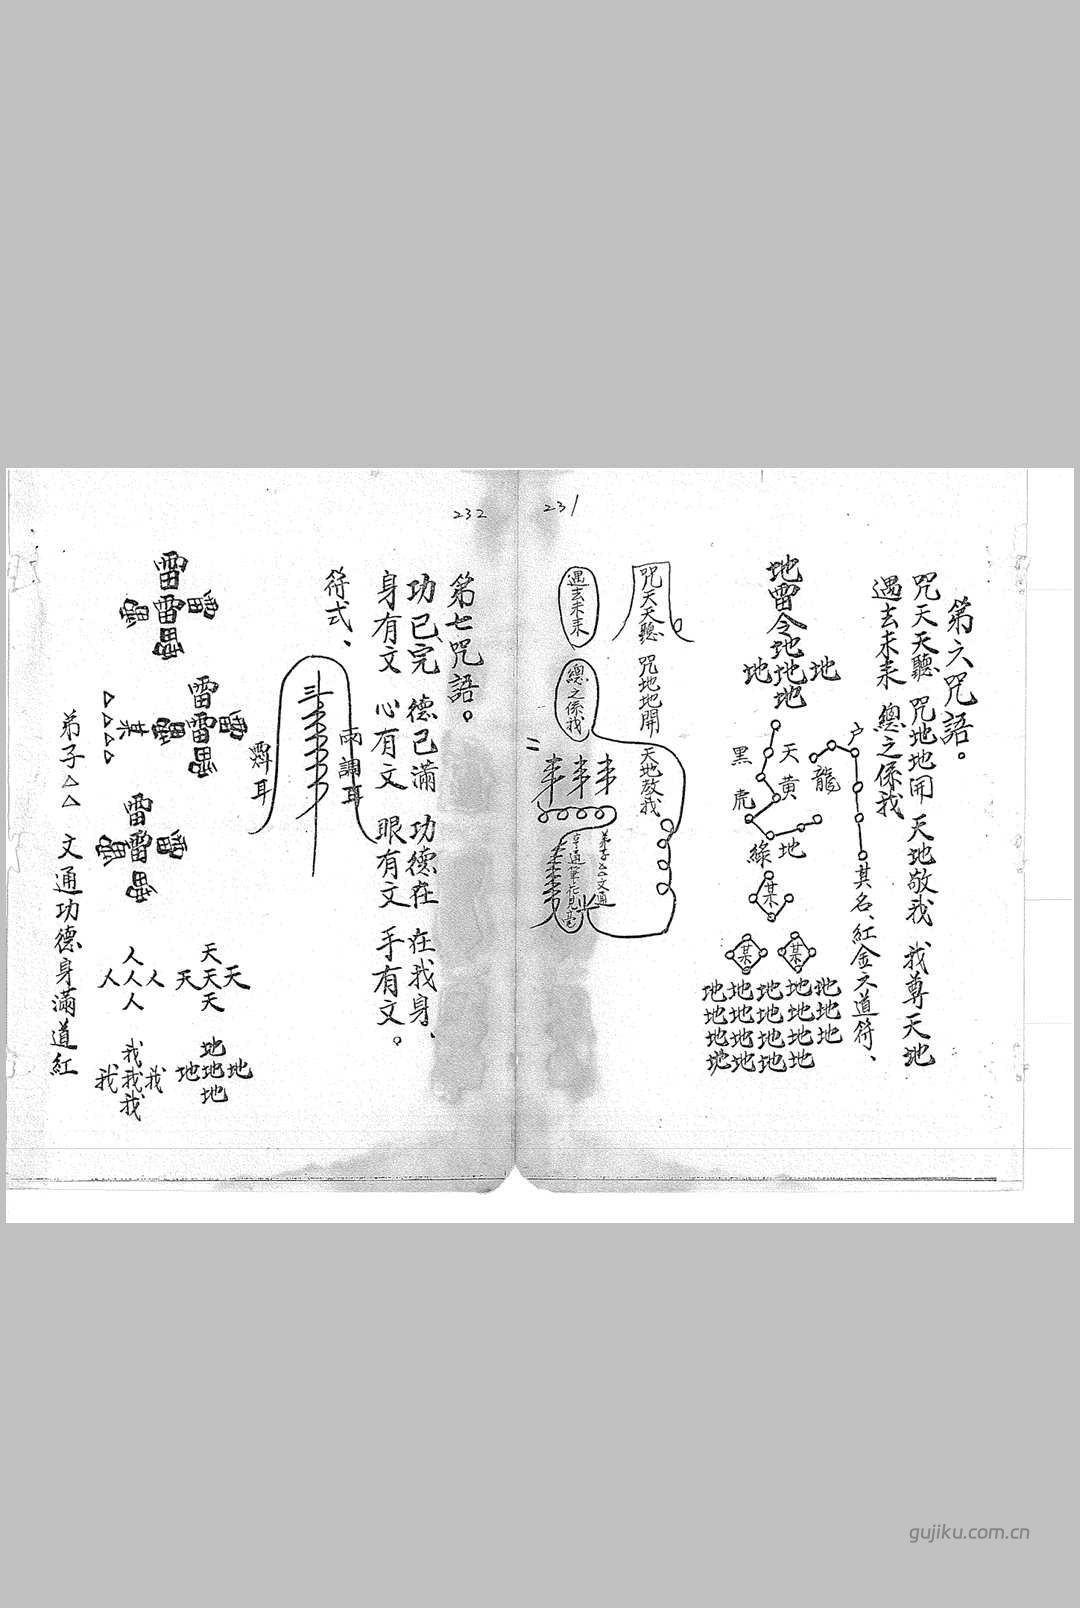 231
第六咒語。
咒天天聽 咒地地開 天地敬我 我尊天地
過去未來 總之係我
其名、紅金之道符、
地雷令地
地地地
地
天黃
龍
黑虎
綠地
某
某 某
地地地地地
地地地地地
地地地地地
地地地地地
咒天天聽
咒地地開
天地敬我
過去未來
總之係我
弟子△△文通
232
第七咒語。
功已完 德已滿 功德在 在我身、
身有文 心有文 眼有文 手有文。
符式、
雷
雷
雷
雷
某
△△△△
雷
雷
天
天天天
天
人
人人人
人
地
地地地
地
我
我我我
我
弟子△△ 文通功德身滿道紅
gujiku.com.cn